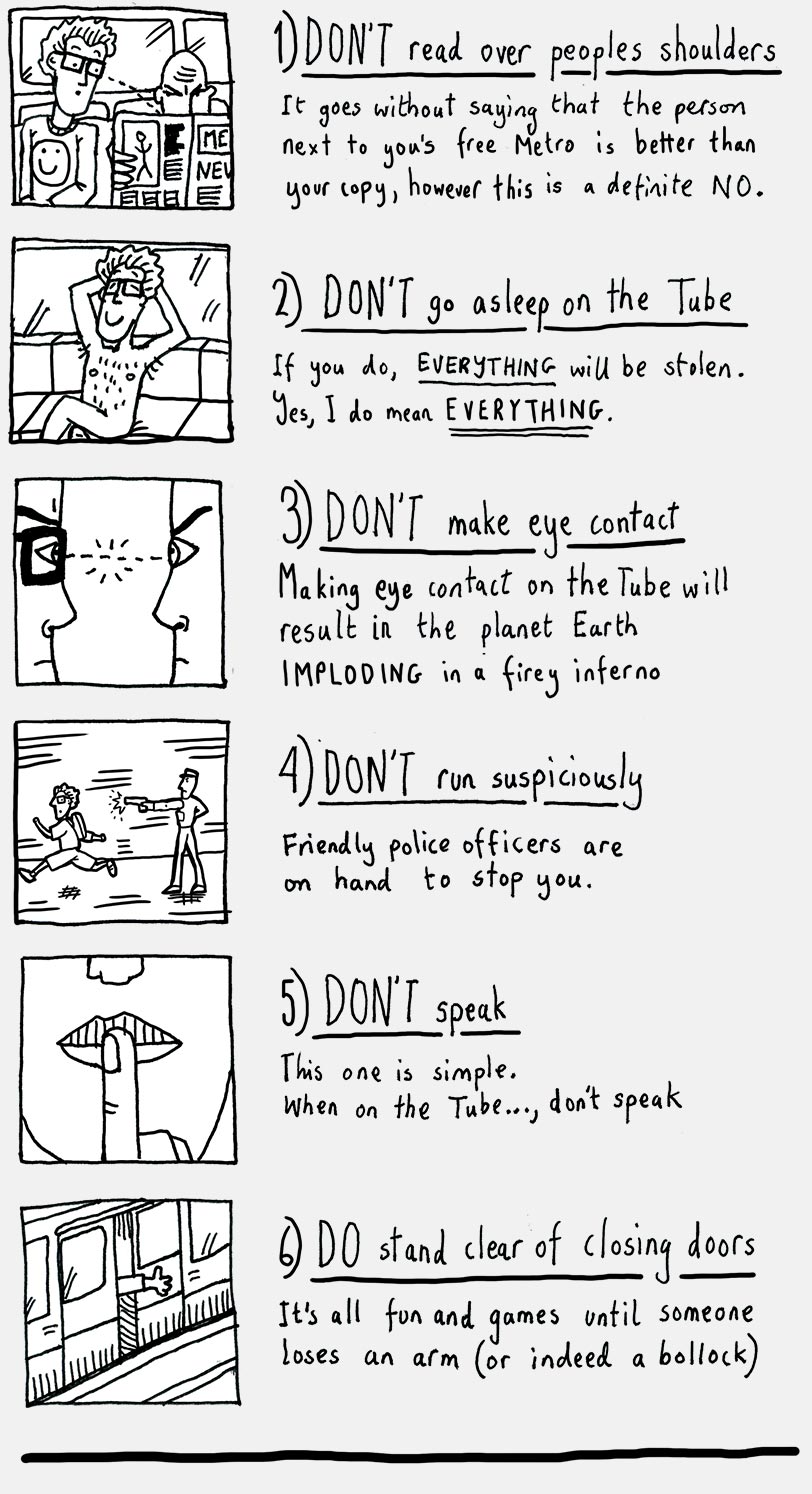 1) DON'T read over peoples shoulders
It goes without saying that the person
next to you's free Metro is better than
your copy, however this is a definite NO.
ME
NEW
2) DON'T go asleep on the Tube
If you do, EVERYTHING will be stolen.
Yes, I do mean EVERYTHING.
3) DON'T make eye contact
Making eye contact on the Tube will
result in the planet Earth
IMPLODING in a firey inferno
4) DON'T run suspiciously
Friendly police officers are
on hand to stop you.
5) DON'T speak
This one is simple.
When on the Tube..., don't speak
6) DO stand clear of closing doors
It's all fun and games until someone
loses an arm (or indeed a bollock)